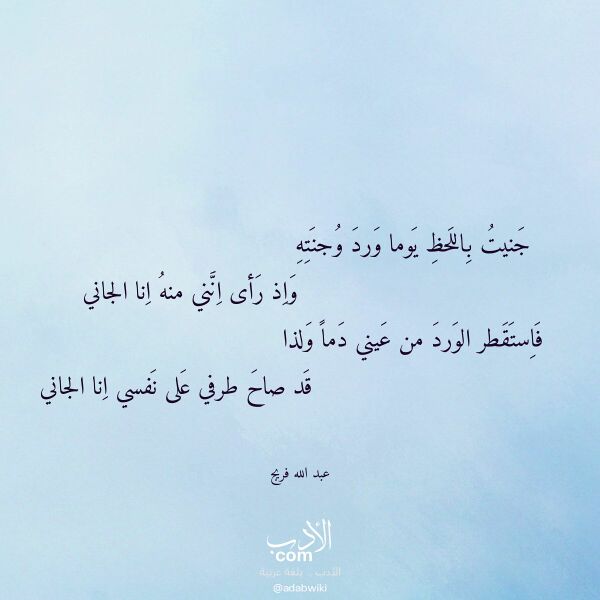 جَنيتُ بِاللَحظِ يَوما وَردَ وُجنَتِهِ
وَاِذ رَأى اِنَّني منهُ اِنا الجاني
فَاِستَقَطر الوَردَ من عَيني دَماً وَلذا
قَد صاحَ طرفي عَلى نَفسي اِنا الجاني
عبد الله فريج
الأدب
com
الأدب .. بلغة عربية
@adabwiki